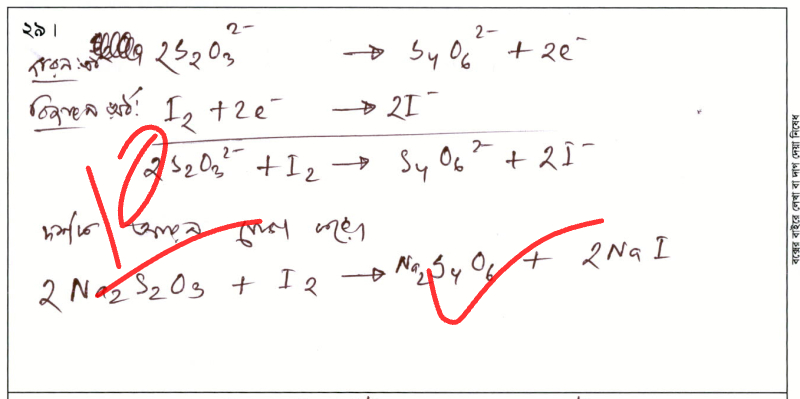 ২৯।
জারন: 2S₂O₃²⁻ → S₄O₆²⁻ + 2e⁻
বিজারন অর্ধ: I₂ + 2e⁻ → 2I⁻
2S₂O₃²⁻ + I₂ → S₄O₆²⁻ + 2I⁻
দর্শক আয়ন যোগ করে
2Na₂S₂O₃ + I₂ → Na₂S₄O₆ + 2NaI
বক্সের বাইরে লেখা বা দাগ দেয়া নিষেধ